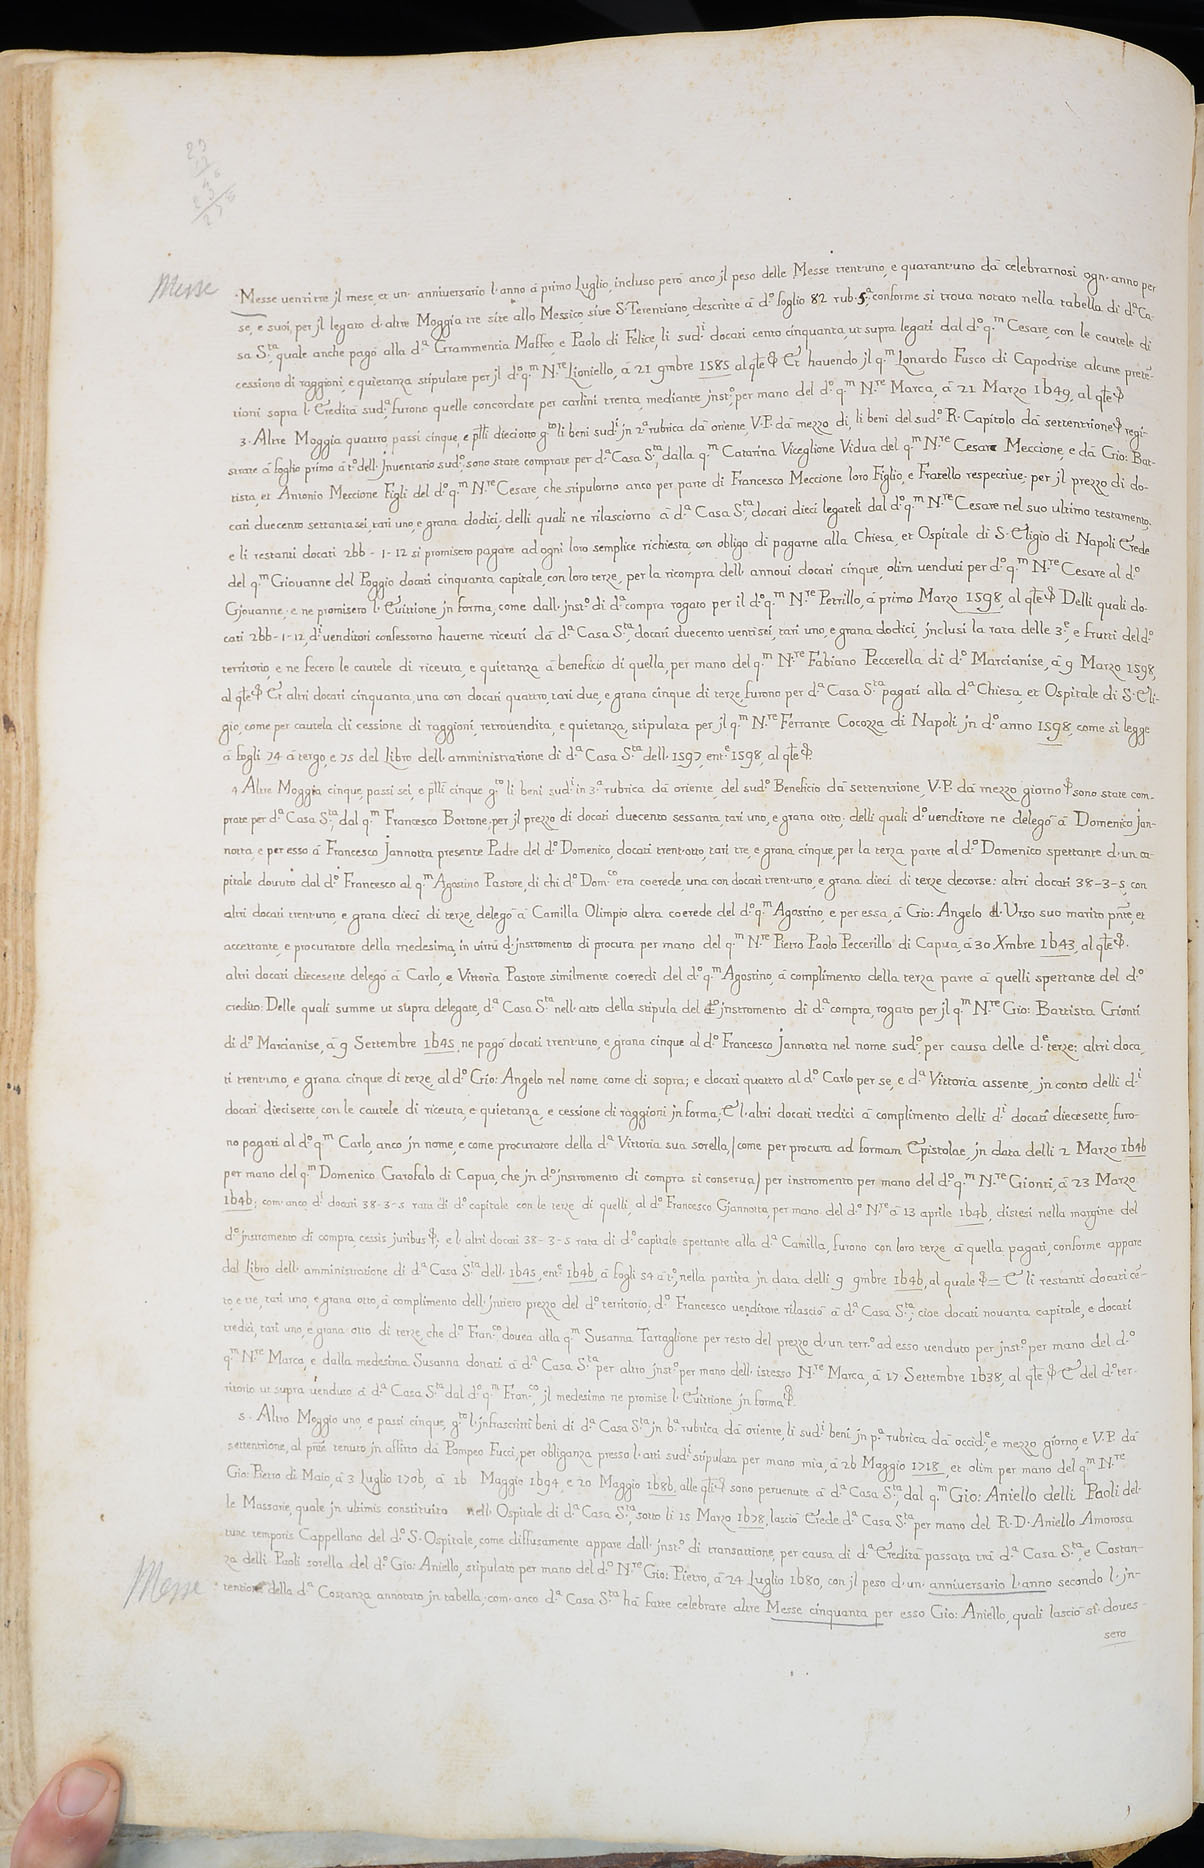 Messe
Messe ventitre jl mese, et un' anniversario l'anno à primo Luglio, incluso però anco jl peso delle Messe trent'uno, e quarant'uno dà celebrarnosi ogn'anno per
se, e suoi, per jl legato d'altre Moggia tre site allo Messico, sive S. Terentiano, descritte à d.º foglio 82 rub. 5.ª conforme si trova notato nella tabella di d.ª Ca-
sa S.ta, quale anche pagò alla d.ª Grammentia Maffeo, e Paolo di Felice, li sud.i docati cento cinquanta, ut supra legati dal d.º q.m Cesare, con le cautele di
cessione di raggioni, e quietanza stipulate per jl d.º q.m N.re Lioniello, à 21 9mbre 1585 al q̃le Et havendo jl q.m Lonardo Fusco di Capodrise alcune prete-
tioni sopra l'Eredità sud.ª, furono quelle concordate per carlini trenta, mediante jnst.º per mano del d.º q.m N.re Marca, à 21 Marzo 1649, al q̃le
3. Altre Moggia quattro, passi cinque, e p̃lli dieciotto g.to li beni sud.i jn 2.ª rubrica dà oriente, V.P. dà mezzo dì, li beni del sud.º R. Capitolo dà settentrione regi-
strate à foglio primo à t.º dell'Jnventario sud.º, sono state comprate per d.ª Casa S.ta, dalla q.m Catarina Viceglione Vidua del q.m N.re Cesare Meccione, e dà Gio: Bat-
tista, et Antonio Meccione Figli del d.º q.m N.re Cesare, che stipulorno anco per parte di Francesco Meccione loro Figlio, e Fratello respective; per jl prezzo di do-
cati duecento settanta sei, tari uno, e grana dodici; delli quali ne rilasciorno à d.ª Casa S.ta, docati dieci legateli dal d.º q.m N.re Cesare nel suo ultimo testamento,
e li restanti docati 266 - 1 - 12 si promisero pagare ad ogni loro semplice richiesta, con obligo di pagarne alla Chiesa, et Ospitale di S. Eligio di Napoli Erede
del q.m Giovanne del Poggio docati cinquanta capitale, con loro terze, per la ricompra dell'annovi docati cinque, olim venduti per d.º q.m N.re Cesare al d.º
Gjovanne; e ne promisero l'Evittione jn forma, come dall'jnst.º di d.ª compra rogato per il d.º q.m N.re Petrillo, à primo Marzo 1598, al q̃le Delli quali do-
cati 266 - 1 - 12, d.i venditori confessorno haverne riceuti dà d.ª Casa S.ta, docati duecento venti sei, tari uno, e grana dodici, jnclusi la rata delle 3.e, e frutti del d.º
territorio, e ne fecero le cautele di riceuta, e quietanza à beneficio di quella, per mano del q.m N.re Fabiano Peccerella di d.º Marcianise, à 9 Marzo 1598,
al q̃le Et altri docati cinquanta, una con docati quattro, tari due, e grana cinque di terze, furono per d.ª Casa S.ta pagati alla d.ª Chiesa, et Ospitale di S. Eli-
gio, come per cautela di cessione di raggioni, retrovendita, e quietanza, stipulata per jl q.m N.re Ferrante Cocozza di Napoli, jn d.º anno 1598, come si legge
à fogli 74 à tergo, e 75 del Libro dell'amministratione di d.ª Casa S.ta dell'1597, ent.e 1598, al q̃le
4 Altre Moggia cinque, passi sei, e p̃lli cinque g.to li beni sud.i in 3.ª rubrica dà oriente, del sud.º Beneficio dà settentrione, V.P. dà mezzo giorno sono state com-
prate per d.ª Casa S.ta, dal q.m Francesco Bottone, per jl prezzo di docati duecento sessanta, tari uno, e grana otto; delli quali d.º venditore ne delegò à Domenico Jan-
notta, e per esso à Francesco Jannotta presente Padre del d.º Domenico, docati trent'otto, tari tre, e grana cinque, per la terza parte al d.º Domenico spettante d'un ca-
pitale dovuto dal d.º Francesco al q.m Agostino Pastore, di chi d.º Dom.co era coerede, una con docati trent'uno, e grana dieci di terze decorse: altri docati 38-3-5, con
altri docati trent'uno, e grana dieci di terze, delegò à Camilla Olimpio altra coerede del d.º q.m Agostino, e per essa, à Gio: Angelo d'Urso suo marito pñte, et
accettante, e procuratore della medesima, in virtù d'jnstromento di procura per mano del q.m N.re Pietro Paolo Peccerillo di Capua, à 30 Xmbre 1643, al q̃le
altri docati diecesette delegò à Carlo, e Vittoria Pastore similmente coeredi del d.º q.m Agostino, à complimento della terza parte à quelli spettante del d.º
credito: Delle quali summe ut supra delegate, d.ª Casa S.ta nell'atto della stipula del jnstromento di d.ª compra, rogato per jl q.m N.re Gio: Battista Gionti
di d.º Marcianise, à 9 Settembre 1645, ne pagò docati trent'uno, e grana cinque al d.º Francesco Jannotta nel nome sud.º, per causa delle d.e terze; altri doca-
ti trent'uno, e grana cinque di terze, al d.º Gio: Angelo nel nome come di sopra; e docati quattro al d.º Carlo per se, e d.ª Vittoria assente, jn conto delli d.i
docati diecisette, con le cautele di riceuta, e quietanza, e cessione di raggioni jn forma; E l'altri docati tredici à complimento delli d.i docati diecesette, furo-
no pagati al d.º q.m Carlo, anco jn nome, e come procuratore della d.ª Vittoria sua sorella, (come per procura ad formam Epistolae, jn data delli 2 Marzo 1646
per mano del q.m Domenico Garofalo di Capua, che jn d.º jnstromento di compra si conserva) per instromento per mano del d.º q.m N.re Gionti, à 23 Marzo
1646; com'anco d.i docati 38-3-5 rata di d.º capitale con le terze di quelli, al d.º Francesco Gjannotta, per mano del d.º N.re à 13 aprile 1646, distesi nella margine del
d.º jnstromento di compra cessis juribus; e l'altri docati 38-3-5 rata di d.º capitale spettante alla d.ª Camilla, furono con loro terze à quella pagati, conforme appare
dal Libro dell'amministratione di d.ª Casa S.ta dell'1645, ent.e 1646, à fogli 54 à t.º, nella partita jn data delli 9 9mbre 1646, al quale = E li restanti docati cẽ-
to, e tre, tari uno, e grana otto, à complimento dell'jntiero prezzo del d.º territorio; d.º Francesco venditore rilasciò à d.ª Casa S.ta; cioè docati novanta capitale, e docati
tredici, tari uno, e grana otto di terze, che d.º Fran.co dovea alla q.m Susanna Tartaglione per resto del prezzo d'un terr.º ad esso venduto per jnst.º per mano del d.º
q.m N.re Marca, e dalla medesima Susanna donati à d.ª Casa S.ta per altro jnst.º per mano dell'istesso N.re Marca, à 17 Settembre 1638, al q̃le E del d.º ter-
ritorio ut supra venduto à d.ª Casa S.ta dal d.º q.m Fran.co, jl medesimo ne promise l'Evittione jn forma
5. Altro Moggio uno, e passi cinque, g.to l'jnfrascritti beni di d.ª Casa S.ta jn 6.ª rubrica dà oriente, li sud.i beni jn p.ª rubrica dà occid.e, e mezzo giorno, e V.P. dà
settentrione, al pñte tenuto jn affitto dà Pompeo Fucci, per obliganza presso l'atti sud.i stipulata per mano mia, à 26 Maggio 1718, et olim per mano del q.m N.re
Gio: Pietro di Maio, à 3 Luglio 1706, à 16 Maggio 1694, e 20 Maggio 1686, alle q̃li sono pervenute à d.ª Casa S.ta, dal q.m Gio: Aniello delli Paoli del-
le Massarie, quale jn ultimis constituito nell'Ospitale di d.ª Casa S.ta, sotto li 15 Marzo 1678, lasciò Erede d.ª Casa S.ta per mano del R.D. Aniello Amorosa
tunc temporis Cappellano del d.º S. Ospitale, come diffusamente appare dall'jnst.º di transattione, per causa di d.ª Eredità passata trà d.ª Casa S.ta, e Costan-
za delli Paoli sorella del d.º Gio: Aniello, stipulato per mano del d.º N.re Gio: Pietro, à 24 Luglio 1680, con jl peso d'un' anniversario l'anno secondo l'jn-
Messe
tentione della d.ª Costanza annotato jn tabella, com'anco d.ª Casa S.ta hà fatte celebrare altre Messe cinquanta per esso Gio: Aniello, quali lasciò si doves-
sero